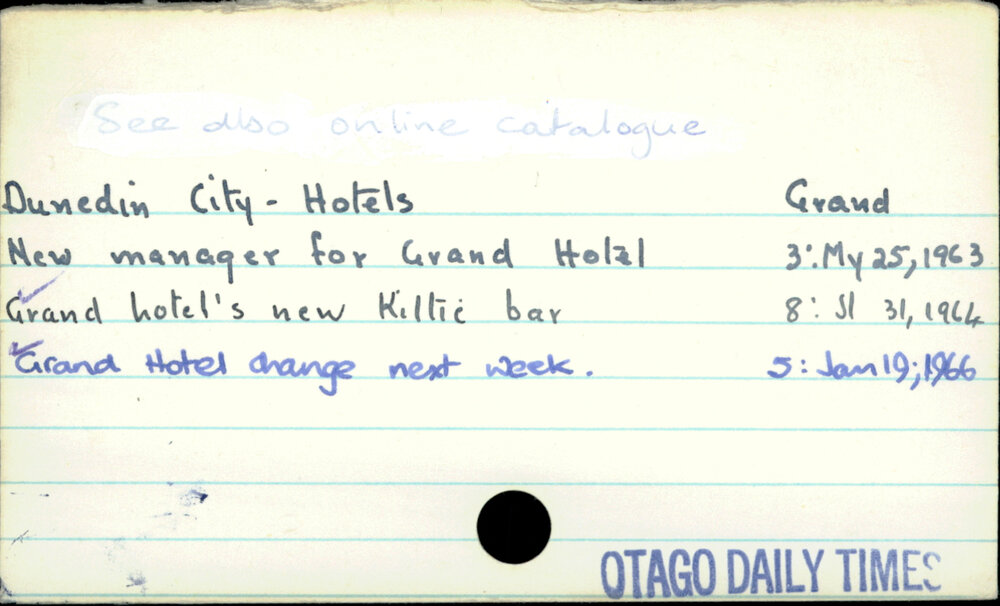 See also online catalogue
Dunedin City - Hotels Grand
New manager for Grand Hotel 3: My 25, 1963
Grand hotel's new Kiltie bar 8: Jl 31, 1964
Grand Hotel change next week. 5: Jan 19; 1966
OTAGO DAILY TIMES